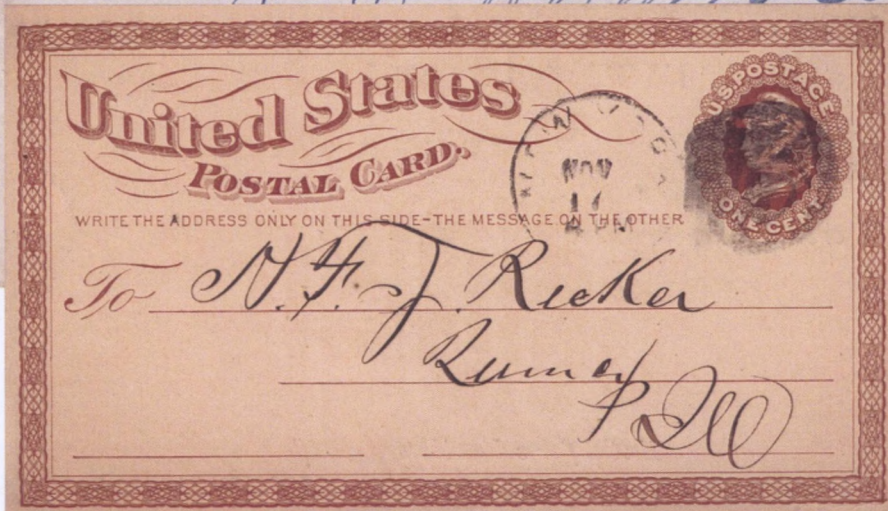 United States
POSTAL CARD.
U.S. POSTAGE
ONE CENT
NEW YORK
NOV
17
WRITE THE ADDRESS ONLY ON THIS SIDE-THE MESSAGE ON THE OTHER
To N. F. J. Recker
Ill